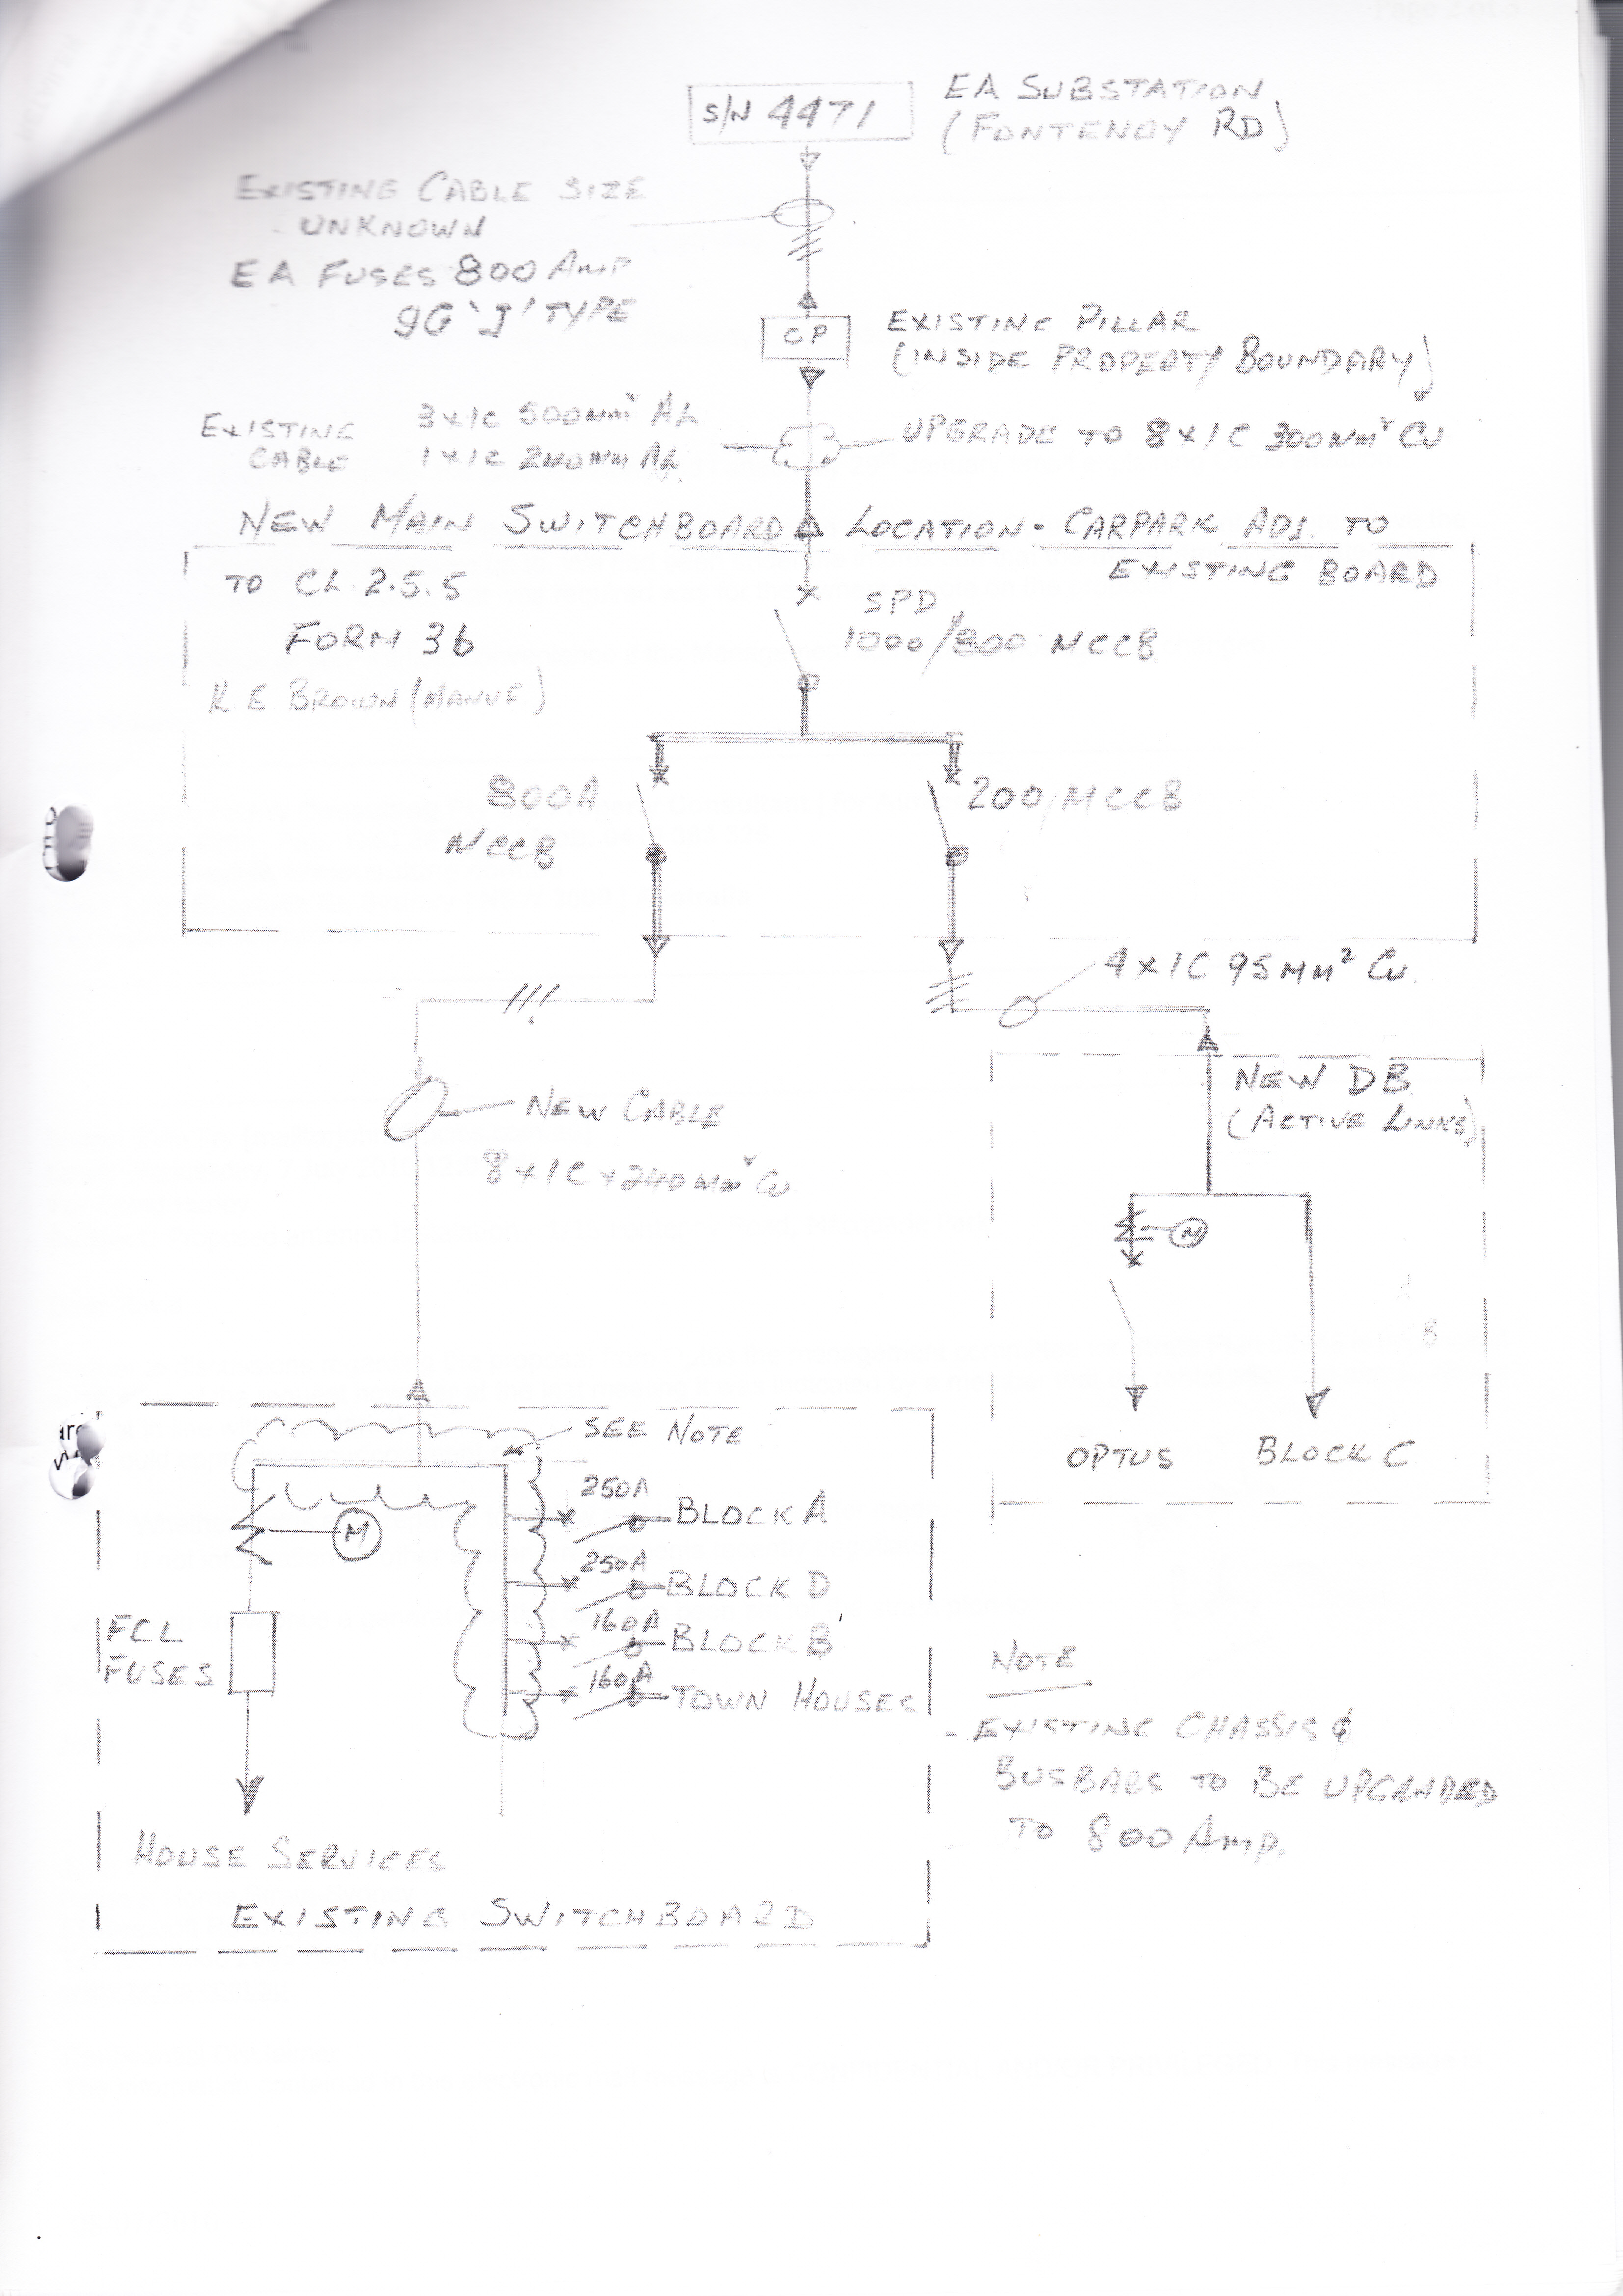 S/N 4471
EA SUBSTATION
(FONTENOY RD)
EXISTING CABLE SIZE
- UNKNOWN
EA FUSES 800 AMP
gG 'J' TYPE
CP
EXISTING PILLAR
(INSIDE PROPERTY BOUNDARY)
EXISTING CABLE
3x1C 500mm² AL
1x1C 240mm AL
UPGRADE TO 8x1C 300mm² Cu
NEW MAIN SWITCHBOARD
LOCATION - CARPARK ADJ. TO
EXISTING BOARD
TO CL 2.5.5
FORM 3b
K E BROWN (MANUF)
SPD
1000/800 MCCB
800A
MCCB
200 MCCB
4x1C 95mm² Cu
NEW CABLE
8x1Cx240mm² Cu
NEW DB
(ACTIVE LINKS)
M
OPTUS
BLOCK C
SEE NOTE
250A
BLOCK A
M
250A
BLOCK D
160A
BLOCK B
160A
TOWN HOUSES
FCL
FUSES
HOUSE SERVICES
EXISTING SWITCHBOARD
NOTE
- EXISTING CHASSIS &
BUSBARS TO BE UPGRADED
TO 800 AMP.